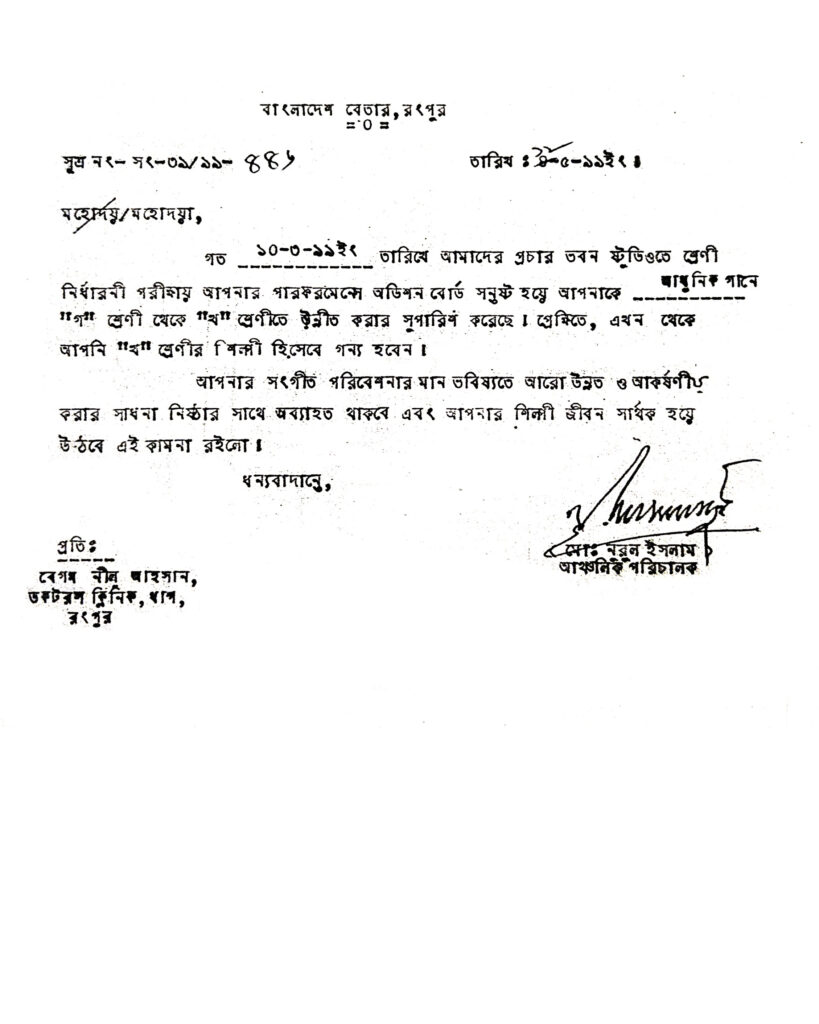 বাংলাদেশ বেতার, রংপুর
=০=
সূত্র নং- সং-৩১/৯১- ৪৪৬ তারিখ : -৫-৯১ইং।
মহোদয়/মহোদয়া,
গত ১০-৩-৯১ইং তারিখে আমাদের প্রচার ভবন ষ্টুডিওতে শ্রেণী
নির্ধারনী পরীক্ষায় আপনার পারফরমেন্সে অডিশন বোর্ড সন্তুষ্ট হয়ে আপনাকে আধুনিক গানে
"গ" শ্রেণী থেকে "খ" শ্রেণীতে উন্নীত করার সুপারিশ করেছে। প্রেক্ষিতে, এখন থেকে
আপনি "খ" শ্রেণীর শিল্পী হিসেবে গন্য হবেন।
আপনার সংগীত পরিবেশনার মান ভবিষ্যতে আরো উন্নত ও আকর্ষণীয়
করার সাধনা নিষ্ঠার সাথে অব্যাহত থাকবে এবং আপনার শিল্পী জীবন সার্থক হয়ে
উঠবে এই কামনা রইলো।
ধন্যবাদান্তে,
মোঃ নূরুল ইসলাম
আঞ্চলিক পরিচালক
প্রতিঃ
বেগম নীল আহসান,
ডকটরস ক্লিনিক, ধাপ,
রংপুর